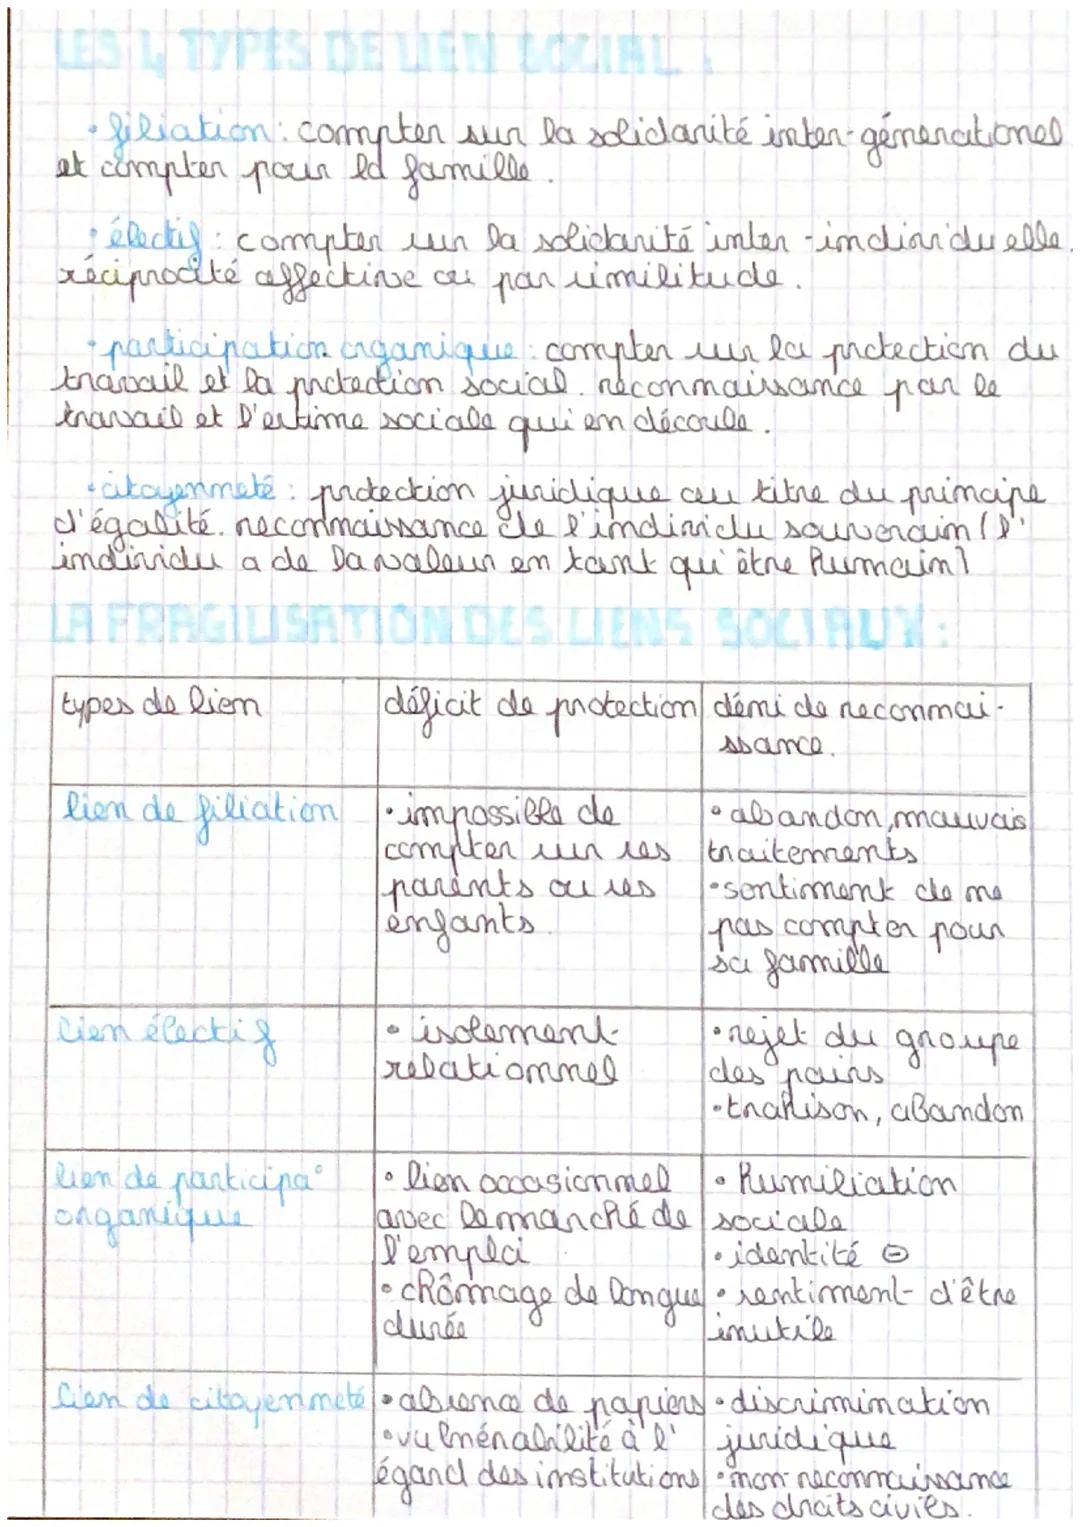 LES 4 TYPES DE LIEN SOCIAL :
• filiation : compter sur la solidarité inter-générationel
et compter pour la famille.
• électif : compter sur la solidarité inter-individuelle.
réciprocité affective ou par similitude.
• participation organique : compter sur la protection du
travail et la protection social. reconnaissance par le
travail et l'estime sociale qui en découle.
• citoyenneté : protection juridique au titre du principe
d'égalité. reconnaissance de l'individu souverain (l'
individu a de la valeur en tant qui être humain)
LA FRAGILISATION DES LIENS SOCIAUX :
types de lien
déficit de protection
démi de reconnai-
ssance.
lien de filiation
• impossible de
compter sur ses
parents ou ses
enfants.
• abandon, mauvais
traitements
• sentiment de ne
pas compter pour
sa famille
lien électif
• isolement
relationnel
• rejet du groupe
des pairs
• trahison, abandon
lien de participa°
organique
• lien occasionnel
avec le marché de
l'emploi
• chômage de longue
durée
• humiliation
sociale
• identité ⊖
• sentiment d'être
inutile
lien de citoyenneté
• absence de papiers
• vulnérabilité à l'
égard des institutions
• discrimination
juridique
• non-reconnaissance
des droits civils.